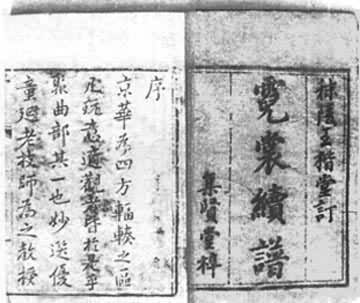 秣陵王楷堂訂
霓裳續譜
集賢堂梓
序
京華為四方輻輳之區
凡玩意適觀者皆於是乎
聚曲部其一也妙選優
童延老技師為之教授